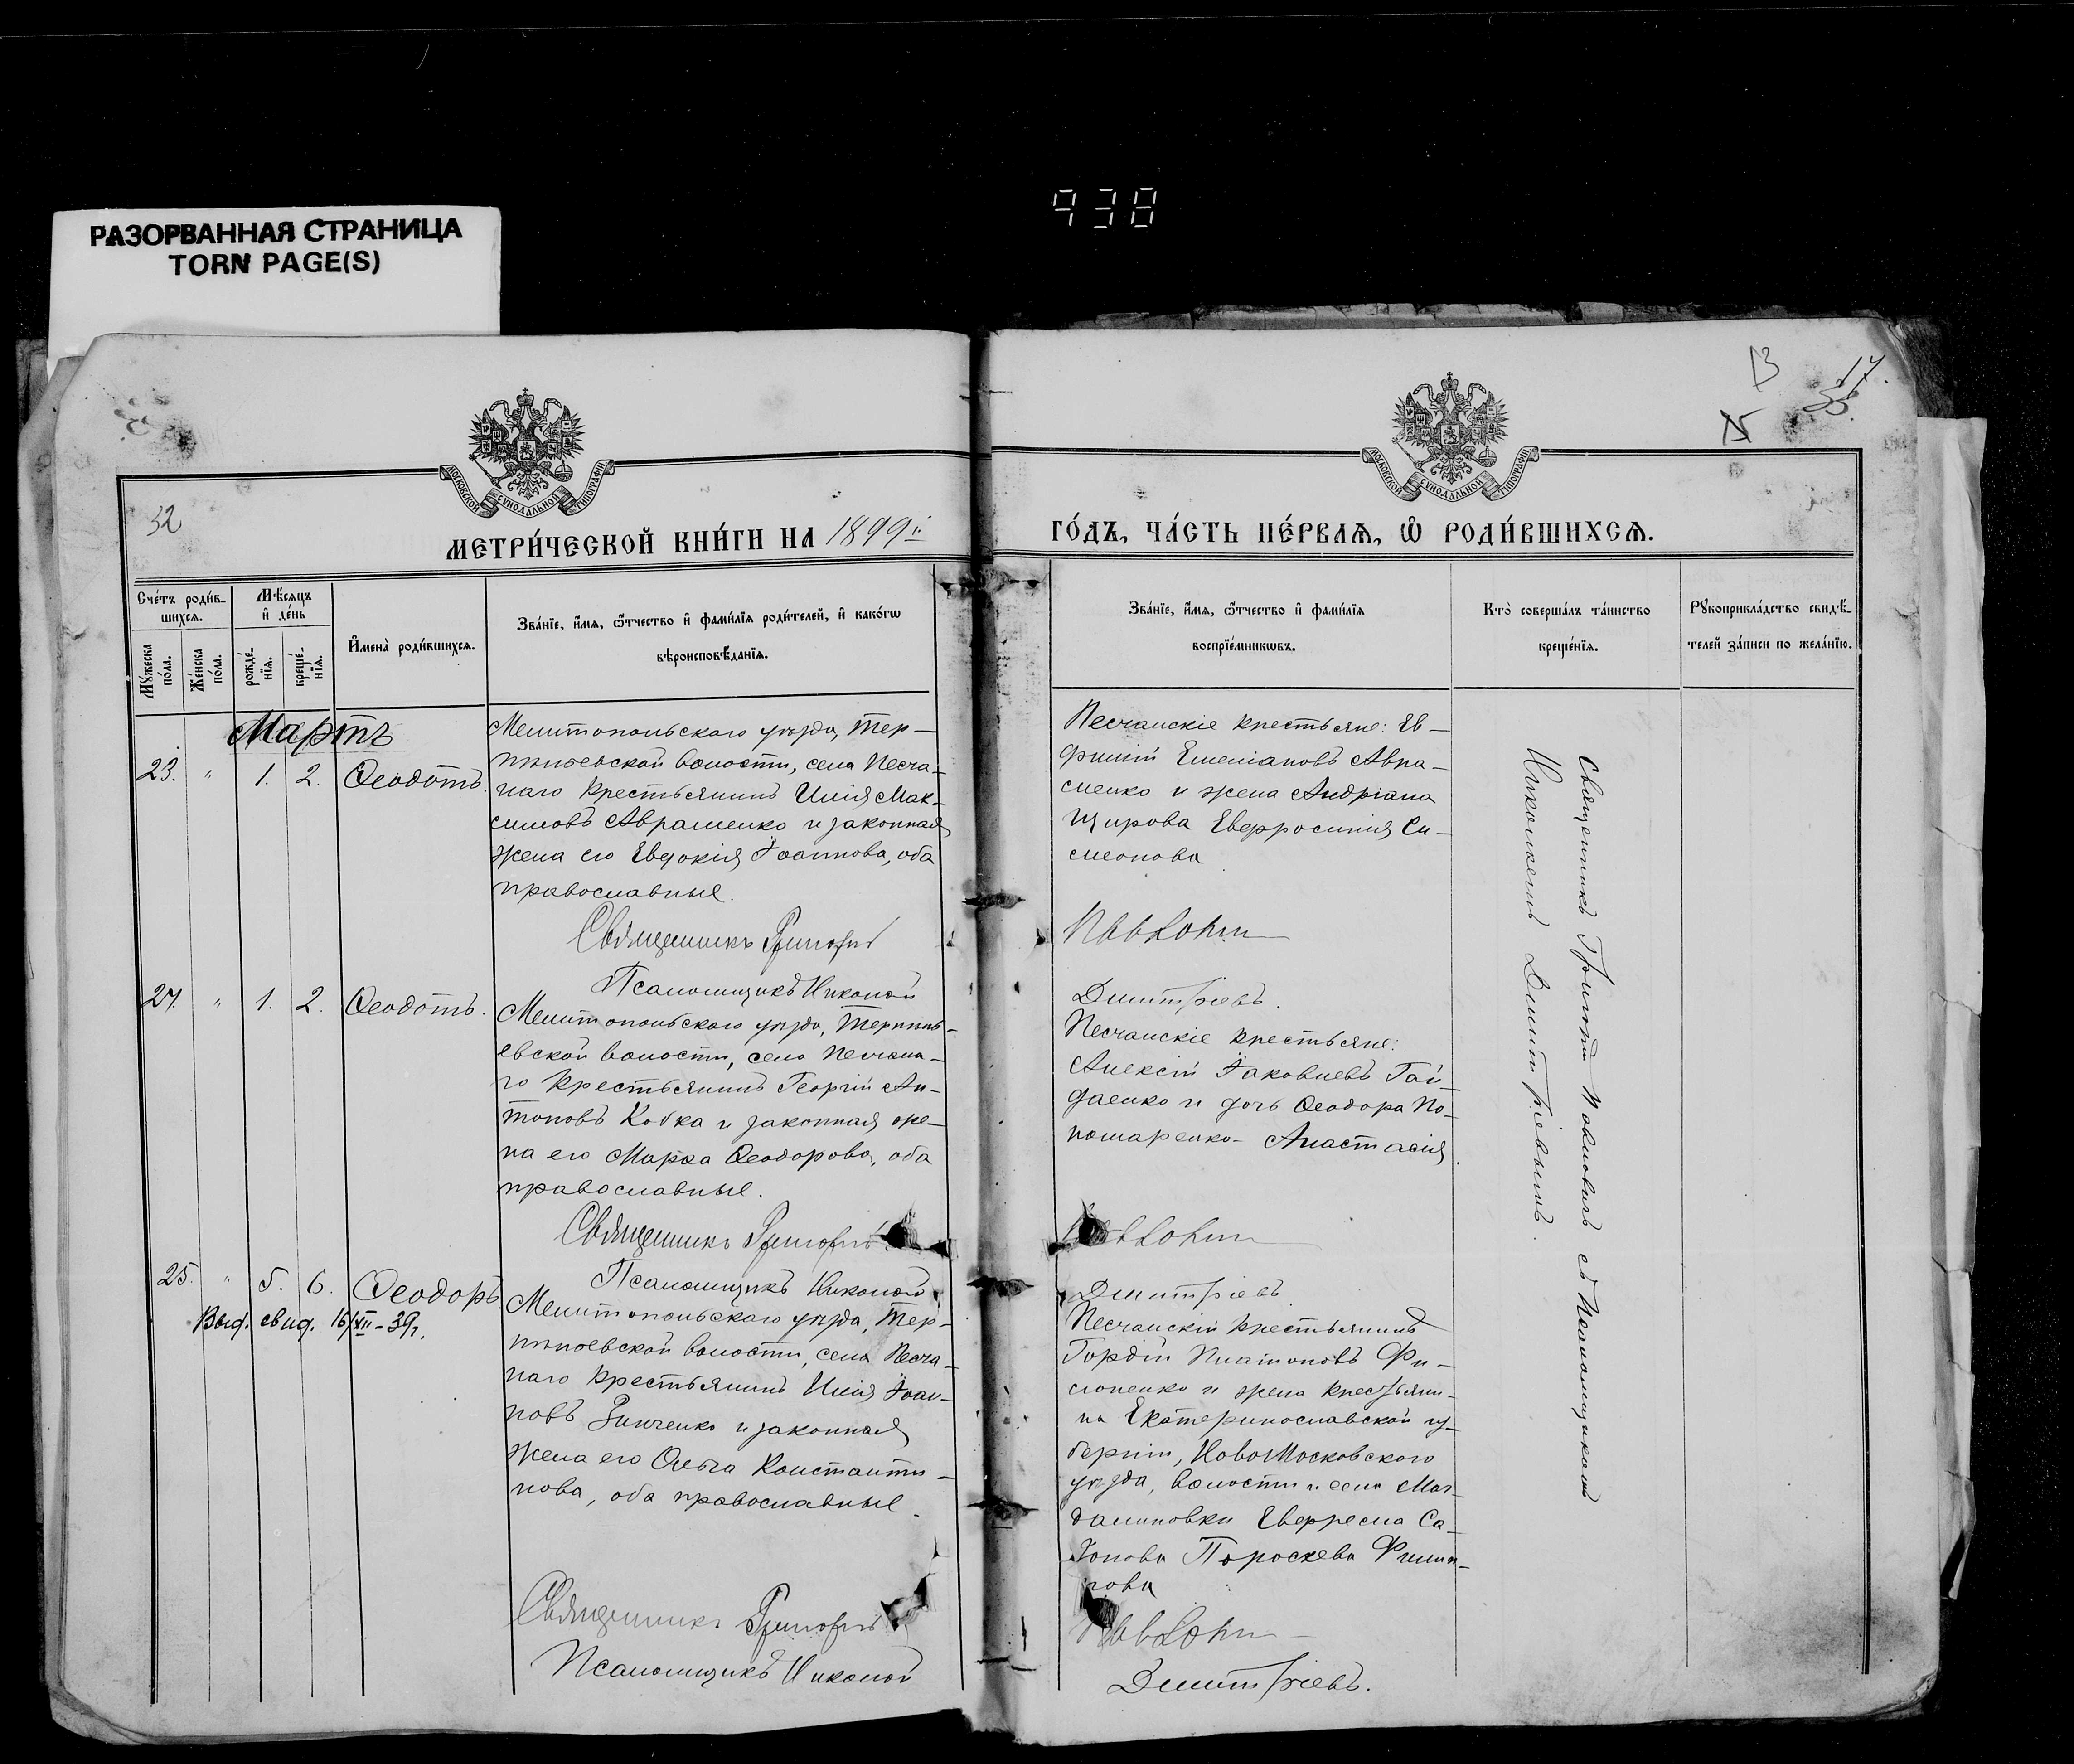 938
РАЗОРВАННАЯ СТРАНИЦА
TORN PAGE(S)
13
17
15
МОСКОВСКОЙ СУНОДАЛЬНОЙ ТИПОГРАФІИ
МОСКОВСКОЙ СУНОДАЛЬНОЙ ТИПОГРАФІИ
32
МЕТРИ́ЧЕСКОЙ КНИ́ГИ НА 1899й
ГО́ДЪ, ЧА́СТЬ ПЕ́РВАѦ, Ѡ҆ РОДИ́ВШИХСѦ.
Сче́тъ роди́в-
шихсѧ.
Мꙋ́жеска по́ла.
Же́нска по́ла.
Мѣ́сяцъ
и҆ де́нь
рожде́-
нїѧ.
креще́-
нїѧ.
И҆мена̀ роди́вшихсѧ.
Зва́нїе, и҆́мѧ, ѻ҆́тчество и҆ фами́лїѧ роди́телей, и҆ како́гѡ
вѣроисповѣ́данїѧ.
Зва́нїе, и҆́мѧ, ѻ҆́тчество и҆ фами́лїѧ
воспрїе́мникѡвъ.
Кто̀ соверша́лъ та́инство
креще́нїѧ.
Рꙋкоприкла́дство свидѣ́-
телей за́писи по жела́нїю.
Мартъ
23. " 1. 2. Ѳеодотъ.
Мелитопольскаго уѣзда, Тер-
пѣньевской волости, села Песча-
наго крестьянинъ Илія Мак-
симовъ Авраменко и законная
жена его Евдокія Іоаннова, оба
православные.
Священникъ Григорій
Псаломщикъ Николай
Песчанскіе крестьяне: Ев-
фимій Емеліановъ Авра-
менко и жена Андріана
Щирова Евфросинія Си-
меонова
Павловичъ
Дмитріевъ.
24. " 1. 2. Ѳеодотъ.
Мелитопольскаго уѣзда, Терпѣнь-
евской волости, села Песчана-
го крестьянинъ Георгій Ан-
тоновъ Кобка и законная же-
на его Марѳа Ѳеодорова, оба
православные.
Священникъ Григорій
Псаломщикъ Николай
Песчанскіе крестьяне:
Алексій Іаковлевъ Гай-
даенко и дочь Ѳеодора По-
номаренко - Анастасія.
Дмитріевъ.
25. " 5. 6. Ѳеодоръ
Выд. свид. 16/VII-39г.
Мелитопольскаго уѣзда, Тер-
пѣньевской волости, села Песча-
наго крестьянинъ Илія Іоан-
новъ Зинченко и законная
жена его Ольга Константи-
нова, оба православные.
Священникъ Григорій
Псаломщикъ Николай
Песчанскій крестьянинъ
Гордій Платоновъ Фи-
лоненко и жена крестьяни-
на Екатеринославской гу-
берніи, НовоМосковскаго
уѣзда, волости и села Маг-
далиновки Евфрема Са-
Параскева Филип-
пова
Дмитріевъ.
Священникъ Григорій Павловичъ съ Псаломщикомъ
Николаемъ Дмитріевымъ.